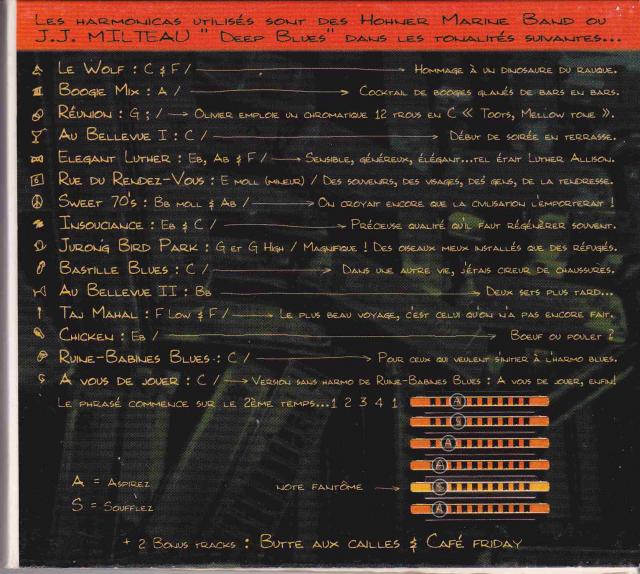 Les harmonicas utilisés sont des Hohner Marine Band ou
J.J. MILTEAU " Deep Blues" dans les tonalités suivantes...
Le Wolf : C & F / Hommage à un dinosaure du rauque.
Boogie Mix : A / Cocktail de boogies glanés de bars en bars.
Réunion : G ; / Olivier emploie un chromatique 12 trous en C « Toots, Mellow tone ».
Au Bellevue I : C / Début de soirée en terrasse.
Elegant Luther : Eb, Ab & F / Sensible, généreux, élégant...tel était Luther Allison.
Rue du Rendez-Vous : E moll (mineur) / Des souvenirs, des visages, des gens, de la tendresse.
Sweet 70's : Bb moll & Ab / On croyait encore que la civilisation l'emporterait !
Insouciance : Eb & C / Précieuse qualité qu'il faut régénérer souvent.
Jurong Bird Park : G et G High / Magnifique ! Des oiseaux mieux installés que des réfugiés.
Bastille Blues : C / Dans une autre vie, j'étais cireur de chaussures.
Au Bellevue II : Bb Deux sets plus tard...
Taj Mahal : F Low & F / Le plus beau voyage, c'est celui qu'on n'a pas encore fait.
Chicken : Eb / Boeuf ou poulet ?
Ruine-Babines Blues : C / Pour ceux qui veulent s'initier à l'harmo blues.
A vous de jouer : C / Version sans harmo de Ruine-Babines Blues : A vous de jouer, enfin!
Le phrasé commence sur le 2ème temps...1 2 3 4 1 A
S
A
A = Aspirez A
note fantôme S
S = Soufflez A
+ 2 Bonus tracks : Butte aux cailles & Café friday